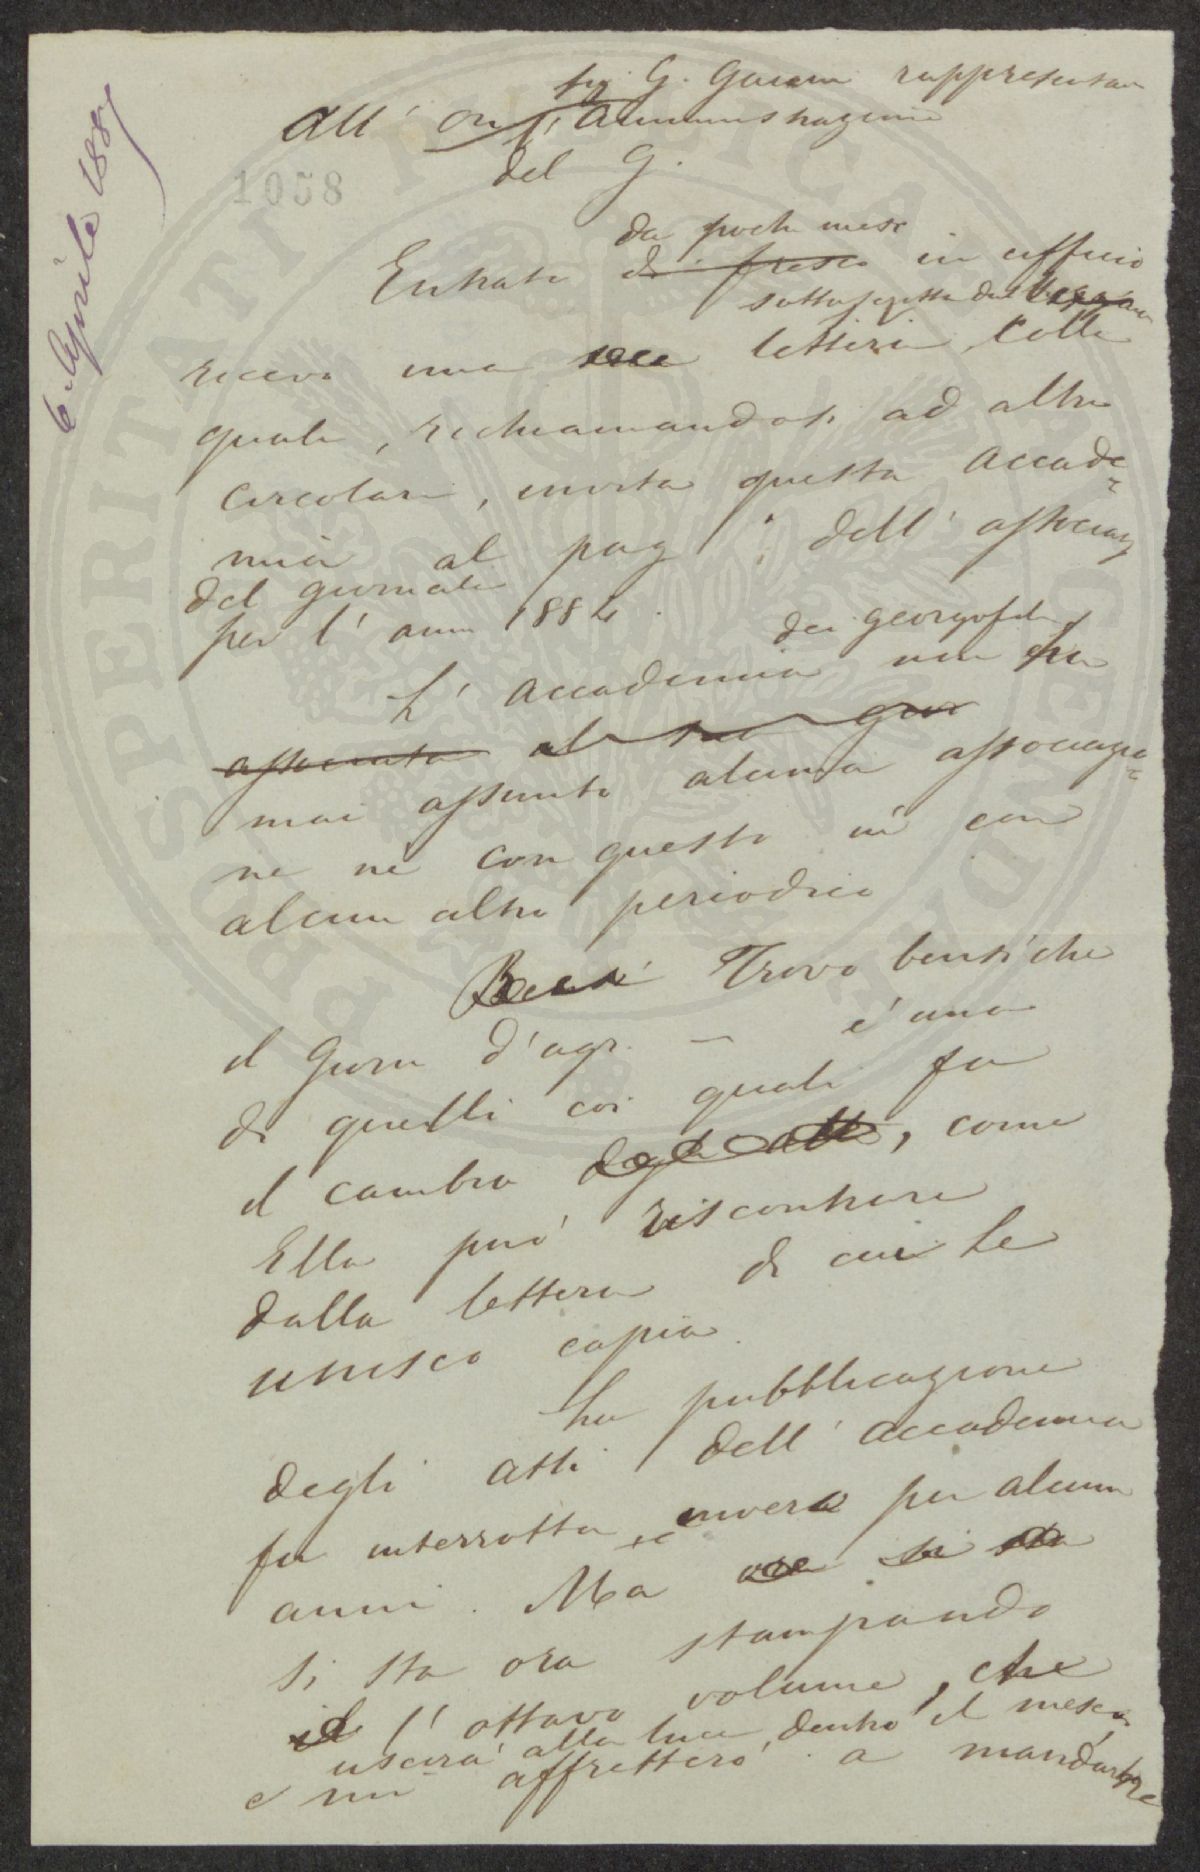 6. Aprile 188
Sig G. rappresentan
All' On. l'Amministrazione
del G.
1058
da pochi mesi
Entrato di fresco in ufficio
sottoscritta dal
ricevo una lettera colla
quale, richiamandosi ad altre
circolari, invita questa Accade=
mia al pag. dell' associaz
del giornale
per l' anno 1884.
dei georgofili
L' Accademia non ha
associata al suo gior
mai assunto alcuna associazio=
ne nè con questo nè con
alcun altro periodico
Bensì Trovo bensì che
il Giorn d'agr. — è uno
di quelli coi quali fa
il cambio degli atti, come
Ella può riscontrare
dalla lettera di cui Le
unisco copia.
La pubblicazione
degli atti dell' Accademia
fu interrotta, è invero per alcuni
anni. Ma ora si sta
si sta ora stampando
il l' ottavo volume, che
uscirà alla luce dentro il mese,
e mi affretterò a mandarle